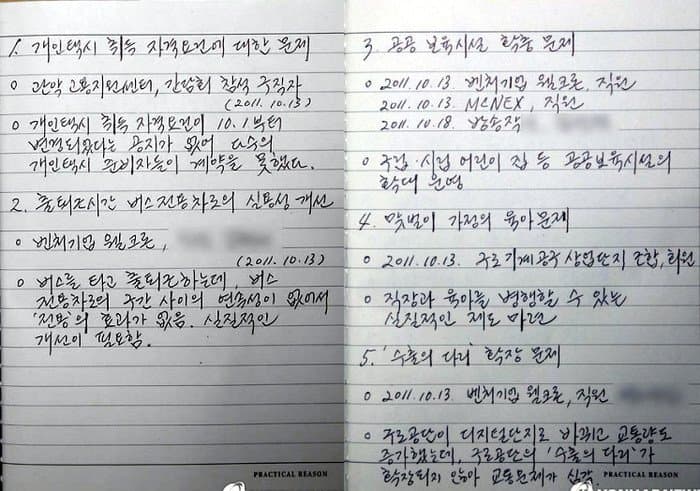 1. 개인택시 취득 자격요건에 대한 문제
o 관악고용지원센터, 간담회 참석 구직자
(2011. 10.13)
o 개인택시 취득 자격요건이 10.1부터
변경되었다는 공지가 없어 다수의
개인택시 준비자들이 계약을 못했다.
2. 출퇴근시간 버스전용차로의 실용성 개선
o 벤처기업 웰크론,
(2011.10.13)
o 버스를 타고 출퇴근하는데, 버스
전용차로의 구간 사이의 연속성이 없어서
'전용'의 효과가 없음. 실질적인
개선이 필요함.
PRACTICAL REASON
3. 공공 보육시설 확충 문제
o 2011.10.13. 벤처기업 웰크론, 직원
2011.10.13. MCNEX, 직원
2011.10.18. 방송작
o 국립·시립 어린이 집 등 공공보육시설의
확대 운영
4. 맞벌이 가정의 육아문제
o 2011.10.13. 구로기계공구상업단지 조합, 회원
o 직장과 육아를 병행할 수 있는
실질적인 제도 마련
5. '수출의 다리' 확장 문제
o 2011.10.13. 벤처기업 웰크론, 직원
o 구로공단이 디지털단지로 바뀌고 교통량도
증가했는데, 구로공단의 '수출의 다리'가
확장되지 않아 교통문제가 심각.
PRACTICAL REASON